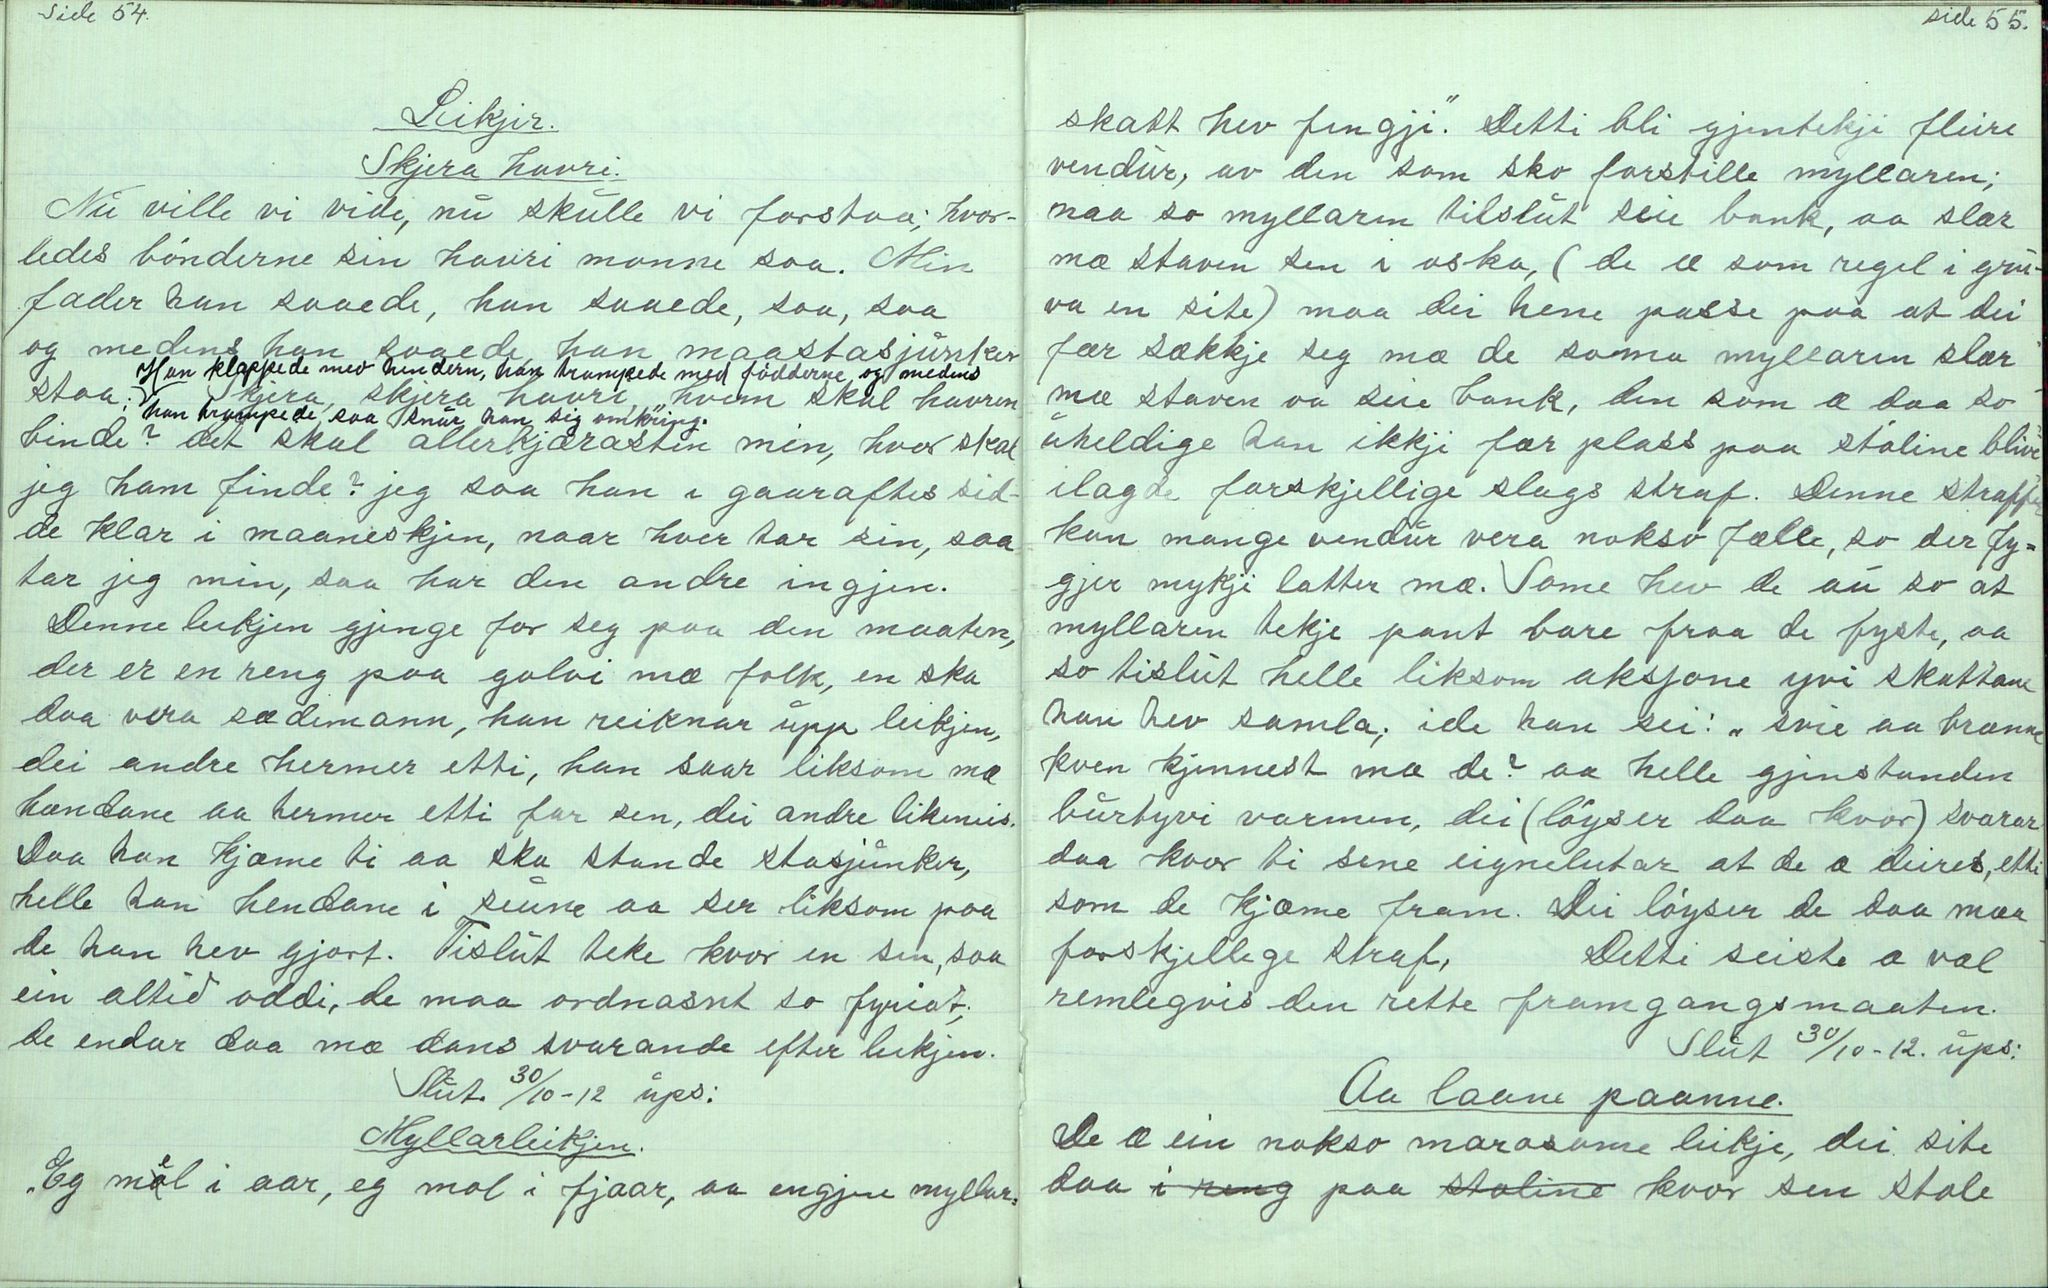 Side 54.
Leikjir.
Skjera havri.
Nú ville vi vide, nú skulle vi forstaa; hvor-
ledes bönderne sin havri monne saa. Min
fader han saaede, han saaede, saa, saa
og medens han saaede han maastasjúnker
Han klappede mev hendern, han trampede med födderne og medens
staa: Skjera, skjera havri, hvem skal havren
han trampede, saa snúr han sig omkring.
binde? det skal allerkjærasten min, hvor skal
jeg ham finde? jeg saa han i gaaraftes sid-
de klar i maaneskjen, naar hver tar sin, saa
tar jeg min, saa har den andre ingjen.
Denne leikjen gjenge for seg paa den maaten,
der er en reng paa golvi mæ folk, en ska
daa vera sædemann, han reiknar úpp leikjen,
dei andre hermer etti, han saar liksom mæ
hændane aa hermer etti far sen, dei andre likeneis.
Daa han kjæme ti aa ska stande stasjúnker,
helle han hendane i seiúne aa ser liksom paa
de han hev gjort. Tislút teke kvor en sin, saa
ein altid oddi, de maa ordnasnt so fyriat,
de endar daa mæ dans svarande efter leikjen.
Slút. 30/10-12 úps:
Myllarleikjen.
"Eg mel i aar, eg mol i fjaar, aa engjen myllar:
side 55.
skatt hev fengji." Detti bli gjentekji fleire
vendúr, av den som sko forstille myllaren;
naa so myllaren tilslút seie bank, aa slær
mæ staven sen i oska, (de æ som regel i grú-
va en site) maa dei hene passe paa at dei
fær sækkje seg mæ de samma myllaren slær
mæ staven oa seie bank, den som æ daa so
úheldige han ikkji fær plass paa stóline blive
ilagde forskjellige slags straf. Denne straffen
kan mange vendúr vera noksó fælle, so der fy-
gjer mykji latter mæ. Some hev de aú so at
myllaren tekje pant bare fraa de fyste, aa
so tislút helle liksom aksjone yvi skattane
han hev samla; ide han sei: "svie aa brænne
kven kjennest mæ de? aa helle gjenstanden
búrtyvi varmen, dei (löyser daa kvor) svarar
daa kvor ti sene eignelutar at de æ deires, etti
som de kjæme fram. Dei löyser de daa mæa
forskjellege straf, Detti seiste æ val
remlegvis den rette framgangsmaaten.
Slút 30/10-12. úps:
Aa laane paanne.
De æ ein nokso morosame leikje, dei site
daa i reng paa stoline kvor sen stole